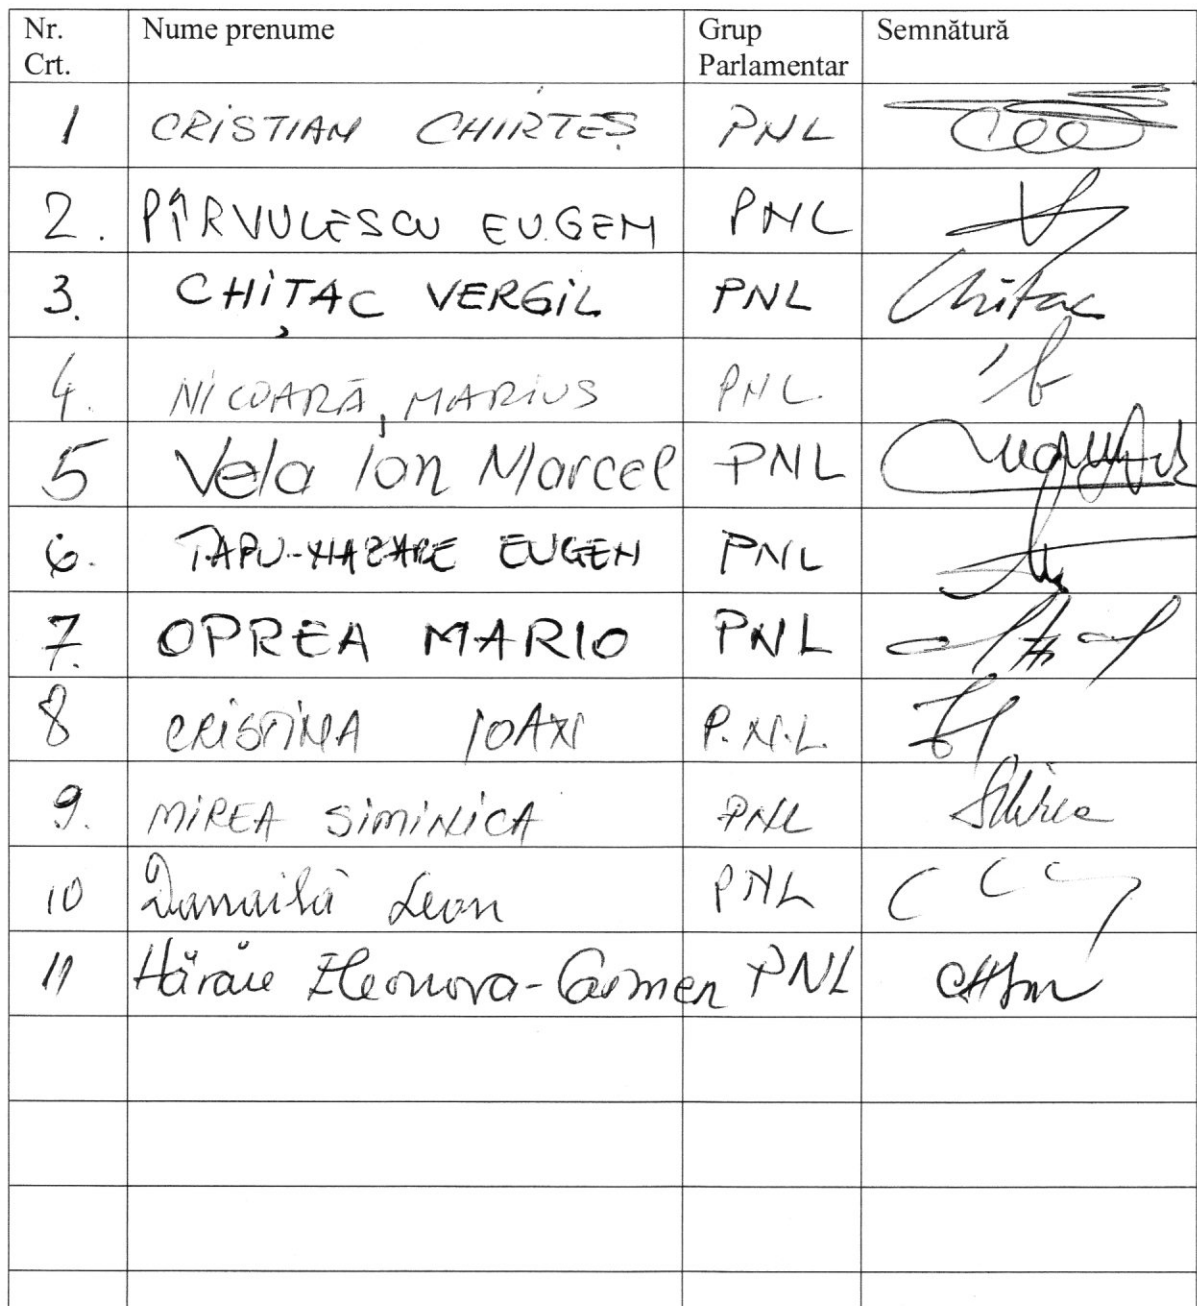 Nr. Crt. Nume prenume Grup Parlamentar Semnătură
1 CRISTIAN CHIRTEȘ PNL
2. PÎRVULESCU EUGEN PNL
3. CHIȚAC VERGIL PNL Chitac
4. NICOARĂ MARIUS PNL.
5 Vela Ion Marcel PNL
6. ȚAPU-NAZARE EUGEN PNL
7. OPREA MARIO PNL
8 CRISTINA IOAN P.N.L.
9. MIREA SIMINICA PNL SMirea
10 Danailă Leon PNL
11 Hărău Eleonora-Carmen PNL